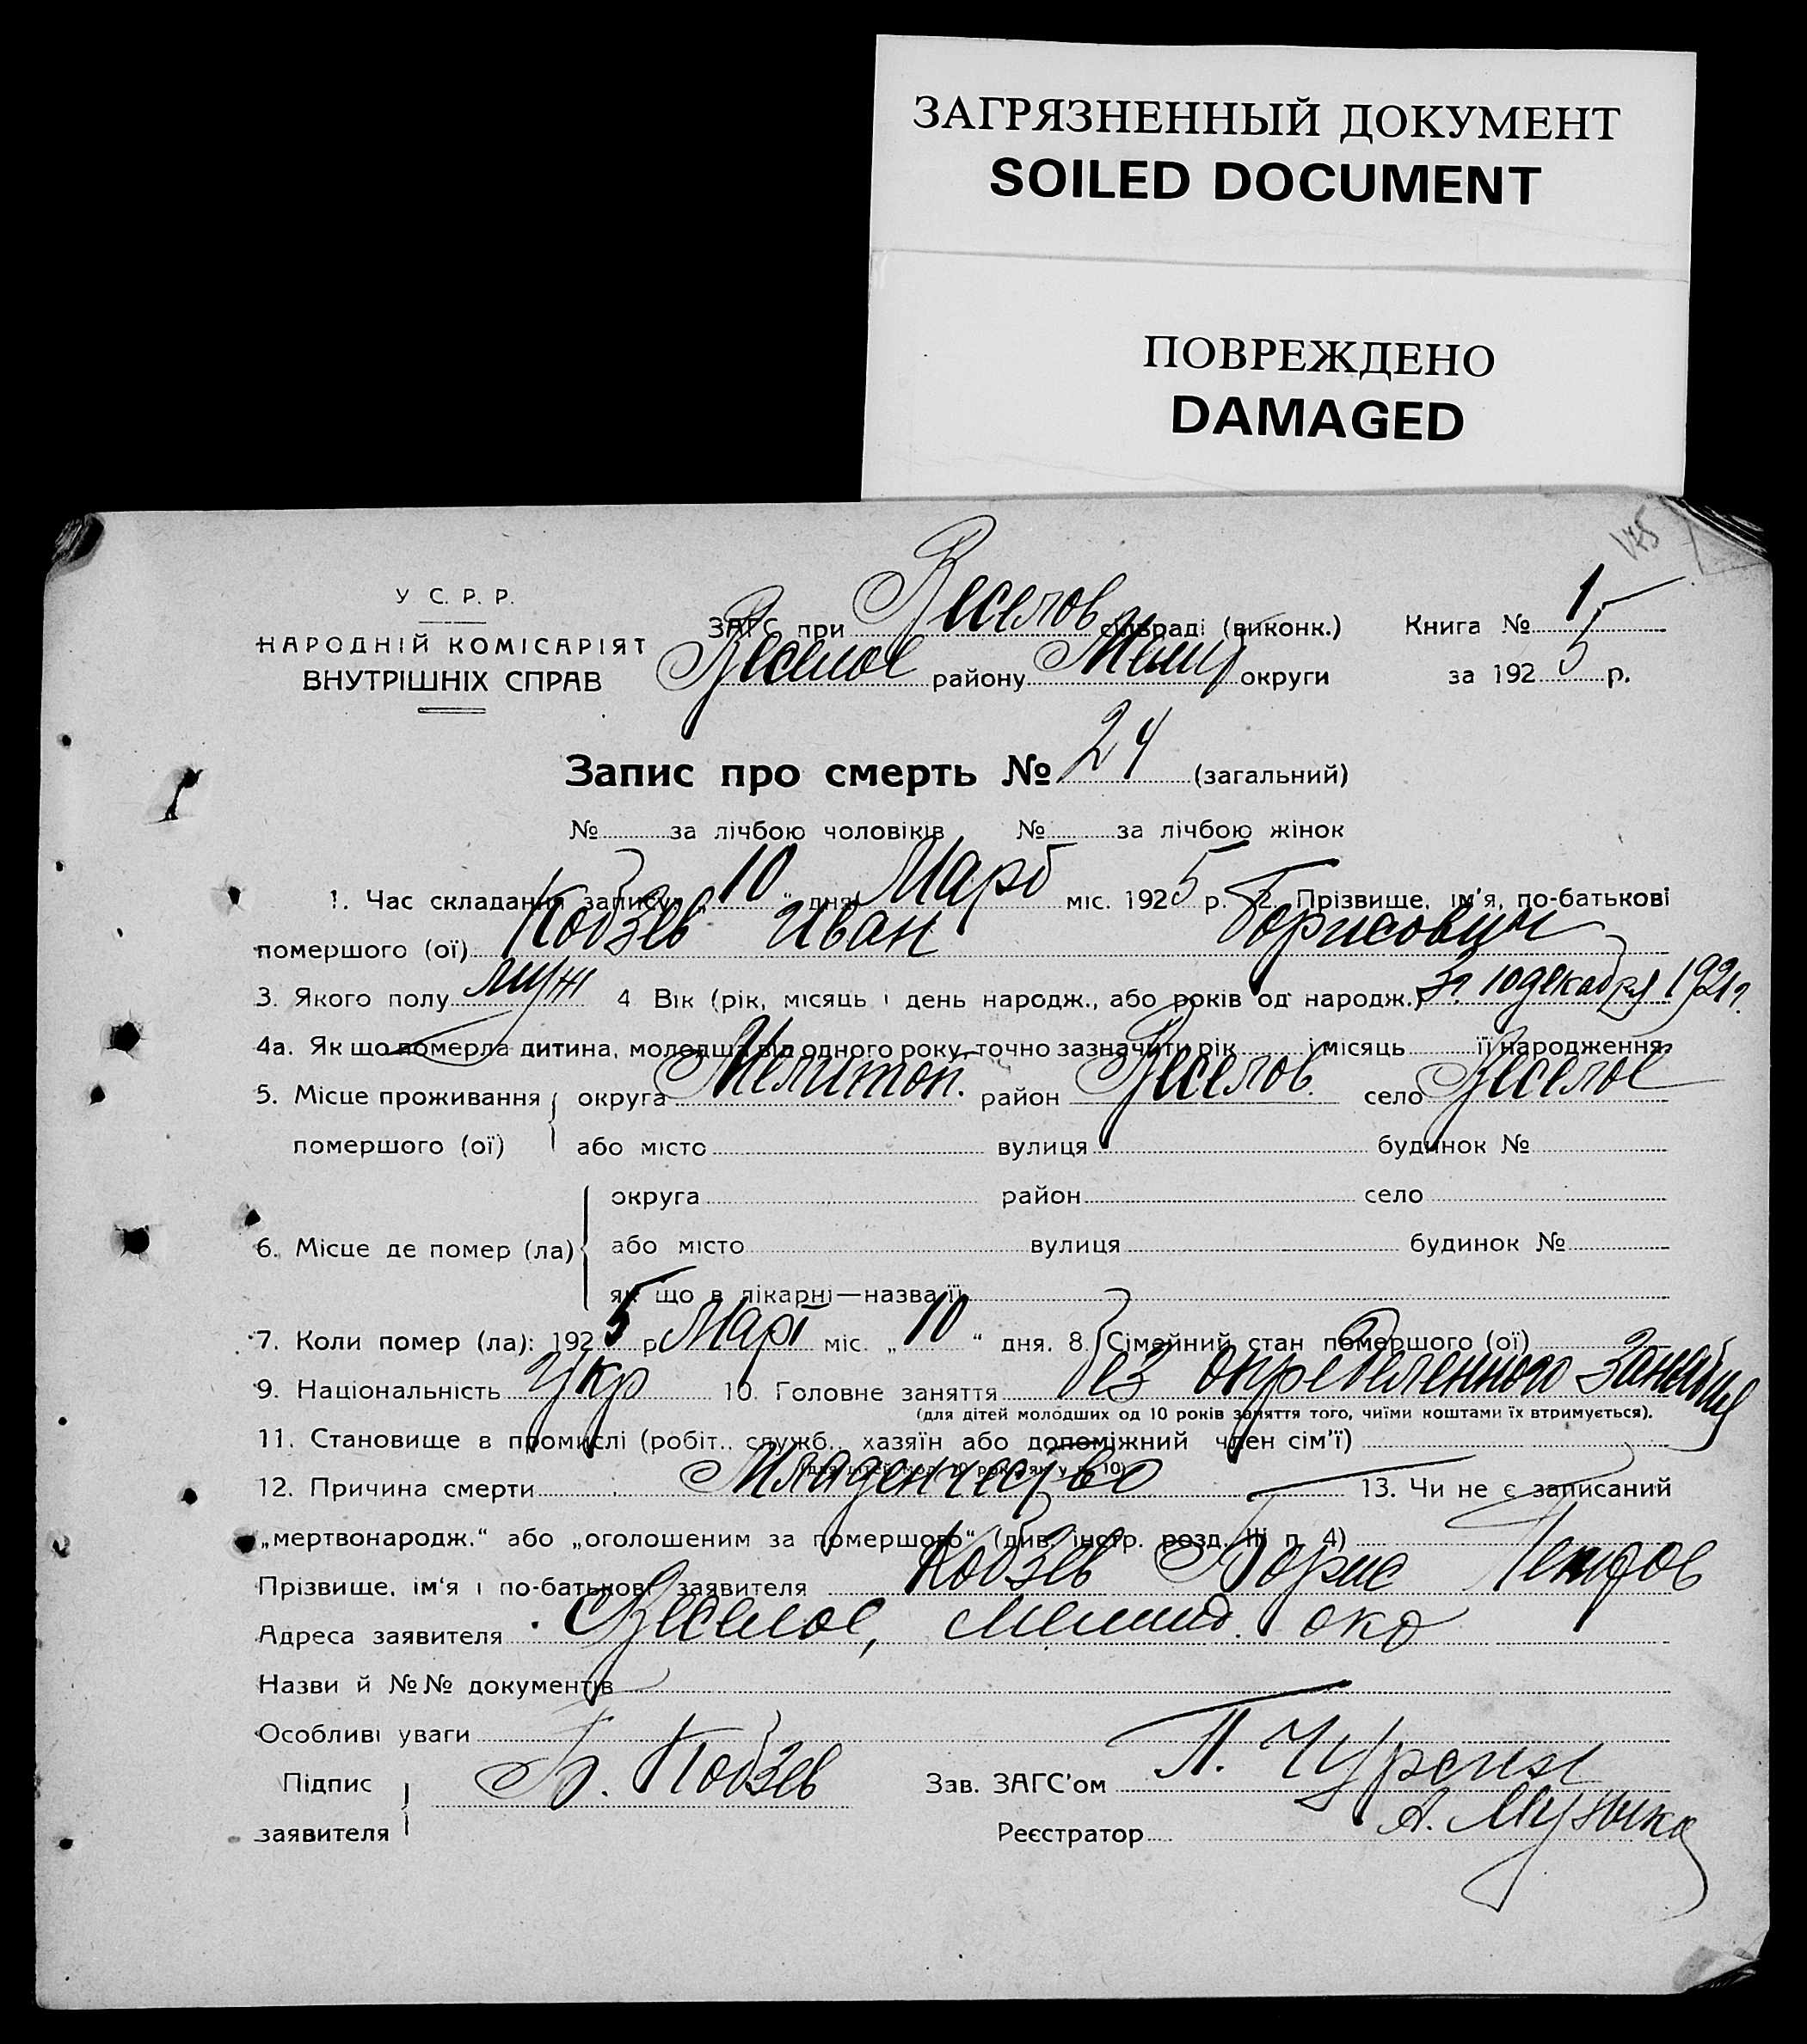 ЗАГРЯЗНЕННЫЙ ДОКУМЕНТ
SOILED DOCUMENT
ПОВРЕЖДЕНО
DAMAGED
У С. Р. Р.
НАРОДНІЙ КОМІСАРІЯТ
ВНУТРІШНІХ СПРАВ
ЗАГС при Веселов сільраді (виконк.) Книга № 1
Веселое району Мелит округи за 1925 р.
Запис про смерть № 24 (загальний)
№ за лічбою чоловіків № за лічбою жінок
1. Час складання запису: „10“ дня Март міс. 1925 р. 2. Прізвище, ім'я, по-батькові
помершого (ої) Кобзев Иван Борисович
3. Якого полу муж 4 Вік (рік, місяць і день народж., або років од народж.) 10 декабря 1921 г.
4а. Як що померла дитина, молодша від одного року, точно зазначити рік і місяць її народження.
5. Місце проживання округа Мелитоп. район Веселов. село Веселое
помершого (ої) або місто вулиця будинок №
округа район село
6. Місце де помер (ла) або місто вулиця будинок №
як що в лікарні—назва її
7. Коли помер (ла): 1925 р Март міс. „10“ дня. 8. Сімейний стан помершого (ої)
9. Національність Укр 10. Головне заняття без определенного занятия
(для дітей молодших од 10 років заняття того, чиїми коштами їх втримується).
11. Становище в промислі (робіт., служб., хазяїн або допоміжний член сім'ї)
(для дітей мол. 10 рок. як у п. 10)
12. Причина смерти Младенчество 13. Чи не є записаний
„мертвонародж.“ або „оголошеним за помершого“ (див. інстр. розд. III п. 4)
Прізвище, ім'я і по-батькові заявителя Кобзев Борис
Адреса заявителя Веселое, Мелит. окр
Назви й №№ документів
Особливі уваги
Підпис Б. Кобзев Зав. ЗАГС'ом П. Чурсин
заявителя Реєстратор А. Музыка